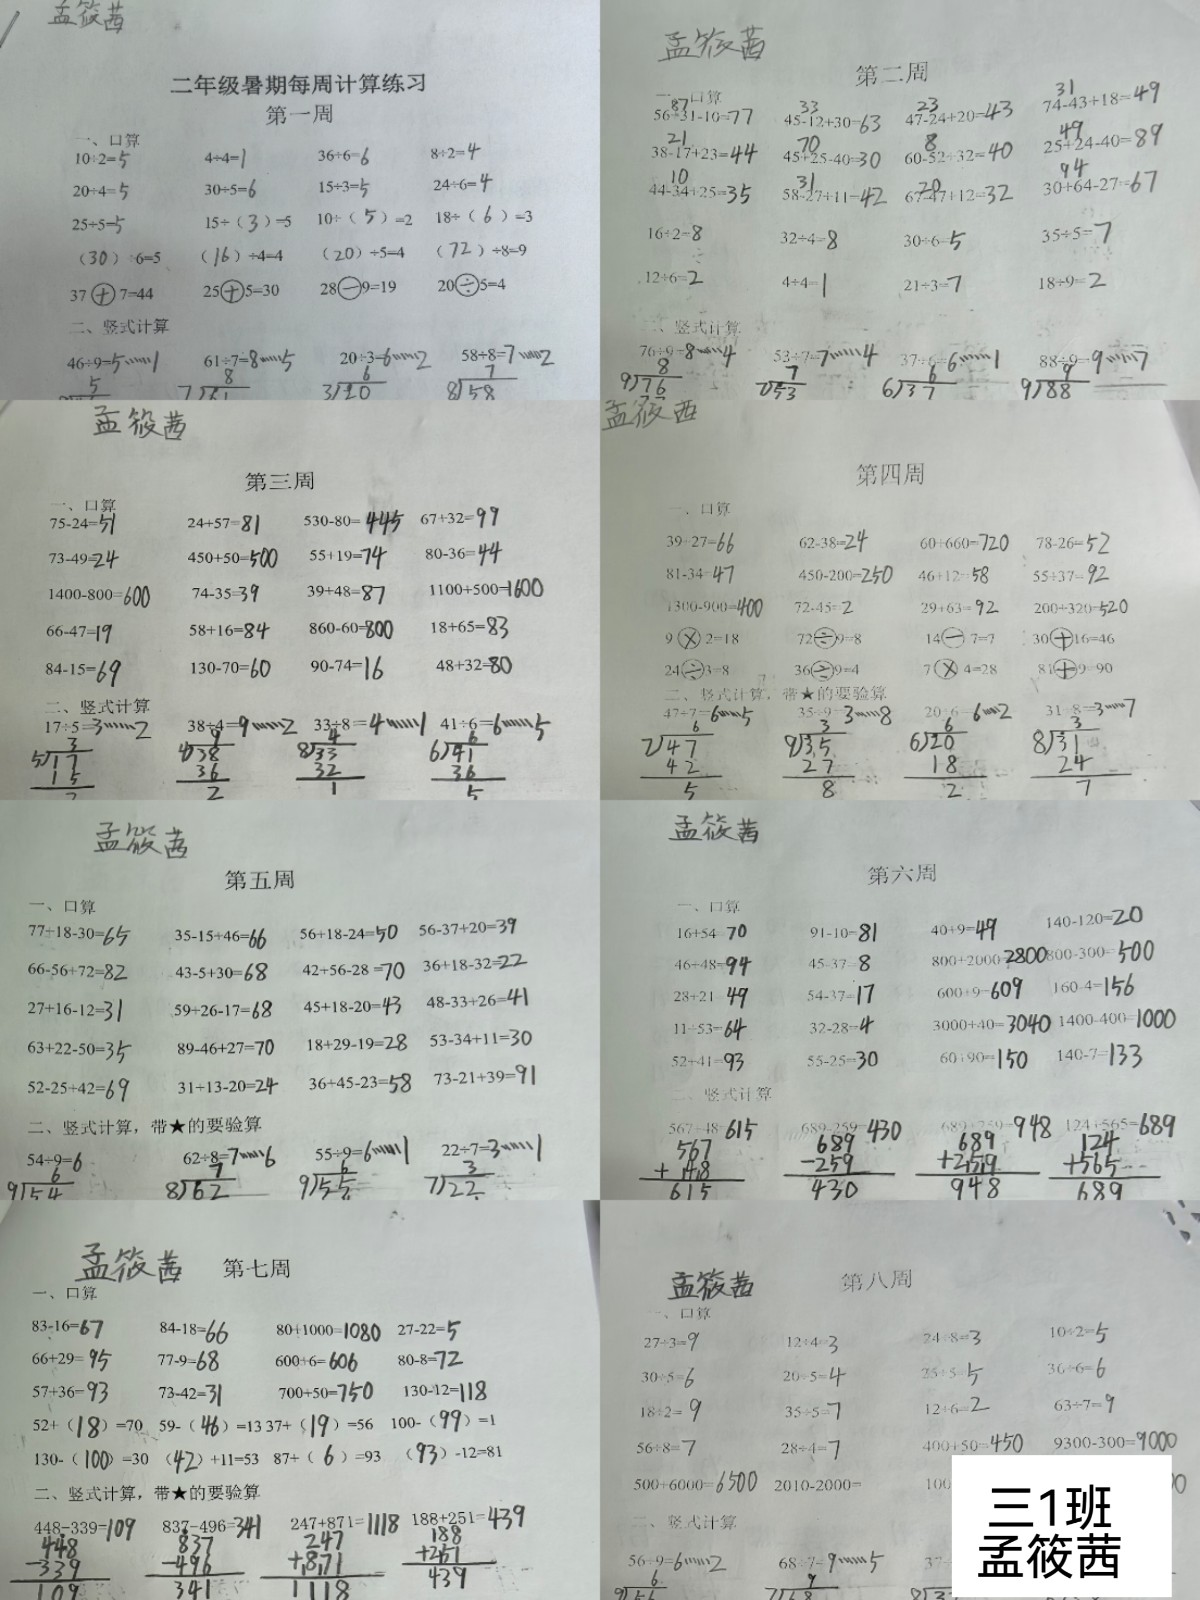 孟筱茜
二年级暑期每周计算练习
第一周
一、口算
10÷2=5 4÷4=1 36÷6=6 8÷2=4
20÷4=5 30÷5=6 15÷3=5 24÷6=4
25÷5=5 15÷（3）=5 10÷（5）=2 18÷（6）=3
（30）÷6=5 （16）÷4=4 （20）÷5=4 （72）÷8=9
37+7=44 25+5=30 28-9=19 20÷5=4
二、竖式计算
46÷9=5……1 61÷7=8……5 20÷3=6……2 58÷8=7……2
5 8 6 7
7 61 3 20 8 58
孟筱茜
第二周
一、口算
87 33 23 31
56+31-10=77 45-12+30=63 47-24+20=43 74-43+18=49
21 70 8 49
38-17+23=44 45+25-40=30 60-52+32=40 25+24-40=89
10 31 20 94
44-34+25=35 58-27+11=42 67-47+12=32 30+64-27=67
16÷2=8 32÷4=8 30÷6=5 35÷5=7
12÷6=2 4÷4=1 21÷3=7 18÷9=2
二、竖式计算
76÷9=8……4 53÷7=7……4 37÷6=6……1 88÷9=9……7
8 7 6 9
9 76 7 53 6 37 9 88
孟筱茜
第三周
一、口算
75-24=51 24+57=81 530-80=445 67+32=99
73-49=24 450+50=500 55+19=74 80-36=44
1400-800=600 74-35=39 39+48=87 1100+500=1600
66-47=19 58+16=84 860-60=800 18+65=83
84-15=69 130-70=60 90-74=16 48+32=80
二、竖式计算
17÷5=3……2 38÷4=9……2 33÷8=4……1 41÷6=6……5
3 9 4 6
5 17 4 38 8 33 6 41
15 36 32 36
2 2 1 5
孟筱茜
第四周
一、口算
39+27=66 62-38=24 60+660=720 78-26=52
81-34=47 450-200=250 46+12=58 55+37=92
1300-900=400 72-45=2 29+63=92 200+320=520
9×2=18 72÷9=8 14-7=7 30+16=46
24÷3=8 36÷9=4 7×4=28 81+9=90
二、竖式计算，带★的要验算
47÷7=6……5 35÷9=3……8 20÷6=6……2 31÷8=3……7
6 3 6 3
7 47 9 35 6 20 8 31
42 27 18 24
5 8 2 7
孟筱茜
第五周
一、口算
77+18-30=65 35-15+46=66 56+18-24=50 56-37+20=39
66-56+72=82 43-5+30=68 42+56-28=70 36+18-32=22
27+16-12=31 59+26-17=68 45+18-20=43 48-33+26=41
63+22-50=35 89-46+27=70 18+29-19=28 53-34+11=30
52-25+42=69 31+13-20=24 36+45-23=58 73-21+39=91
二、竖式计算，带★的要验算
54÷9=6 62÷8=7……6 55÷9=6……1 22÷7=3……1
6 7 6 3
9 54 8 62 9 55 7 22
孟筱茜
第六周
一、口算
16+54=70 91-10=81 40+9=49 140-120=20
46+48=94 45-37=8 800+2000=2800 800-300=500
28+21=49 54-37=17 600+9=609 160-4=156
11+53=64 32-28=4 3000+40=3040 1400-400=1000
52+41=93 55-25=30 60+90=150 140-7=133
二、竖式计算
567+48=615 689-259=430 689+259=948 124+565=689
567 689 689 124
+ 48 -259 +259 +565
615 430 948 689
孟筱茜 第七周
一、口算
83-16=67 84-18=66 80+1000=1080 27-22=5
66+29=95 77-9=68 600+6=606 80-8=72
57+36=93 73-42=31 700+50=750 130-12=118
52+（18）=70 59-（46）=13 37+（19）=56 100-（99）=1
130-（100）=30 （42）+11=53 87+（6）=93 （93）-12=81
二、竖式计算，带★的要验算
448-339=109 837-496=341 247+871=1118 188+251=439
448 837 247 188
-339 -496 +871 +251
109 341 1118 439
孟筱茜 第八周
一、口算
27÷3=9 12÷4=3 24÷8=3 10÷2=5
30÷5=6 20÷5=4 25÷5=5 36÷6=6
18÷2=9 35÷5=7 12÷6=2 63÷7=9
56÷8=7 28÷4=7 400+50=450 9300-300=9000
500+6000=6500 2010-2000= 100
二、竖式计算
56÷9=6……2 68÷7=9……5 37÷
6 9
9 56 7 68
三1班
孟筱茜